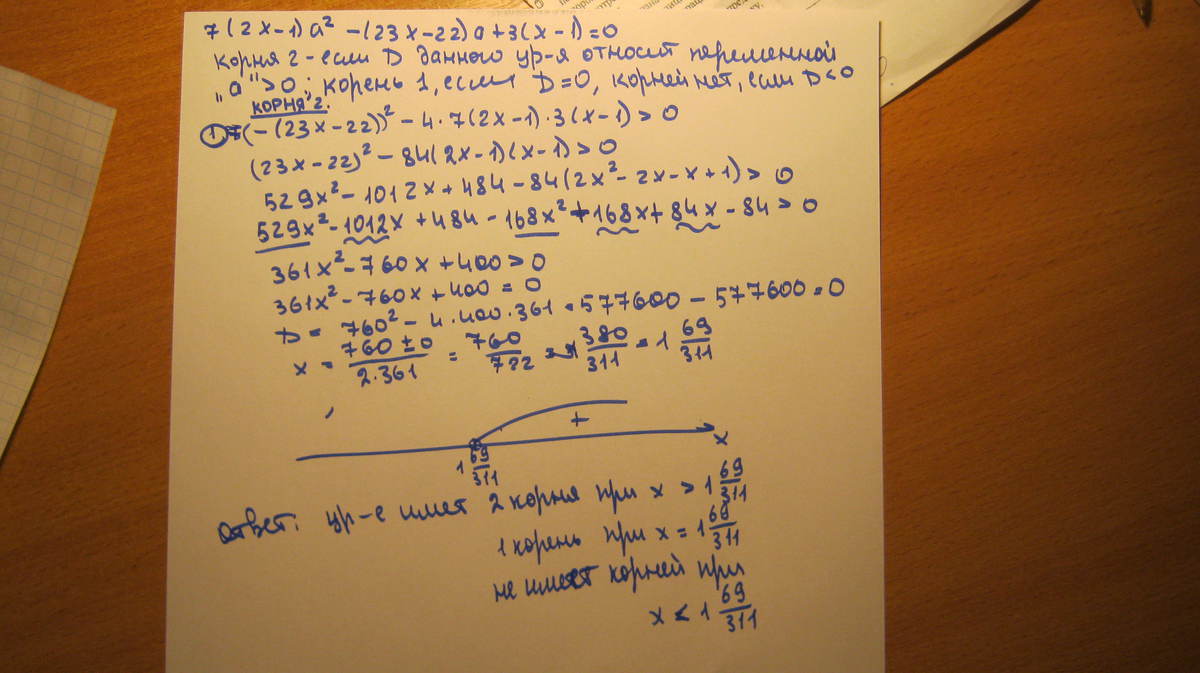 7(2x-1)a² -(23x-22)a+3(x-1)=0
корня 2-если D данного ур-я относит переменной
"a">0; корень 1, если D=0, корней нет, если D<0
КОРНЯ 2.
1) (-(23x-22))² - 4·7(2x-1)·3(x-1)>0
(23x-22)² - 84(2x-1)(x-1)>0
529x²-1012x+484-84(2x²-2x-x+1)>0
529x²-1012x+484-168x²+168x+84x-84>0
361x²-760x+400>0
361x²-760x+400=0
D = 760²-4·400·361=577600-577600=0
x = (760±0)/(2·361) = 760/722 = 380/311 = 1 69/311
+
x
1 69/311
Ответ: ур-е имеет 2 корня при x > 1 69/311
1 корень при x = 1 69/311
не имеет корней при
x < 1 69/311